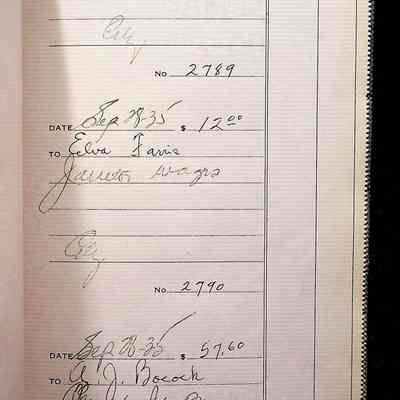 City
No 2789
DATE Sep 28-35 $ 12.00
TO Elva Farris
Janitor wages
City
No 2790
DATE Sep 28-35 $ 57.60
TO A. J. Bocock